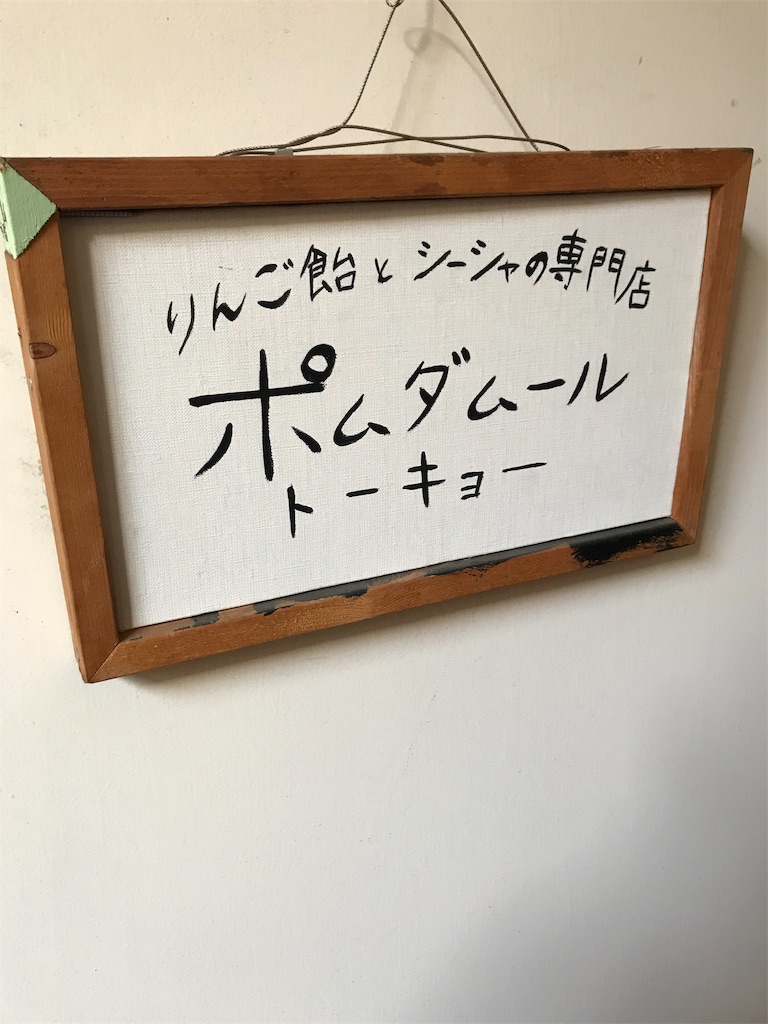 りんご飴とシーシャの専門店
ポムダムール
トーキョー